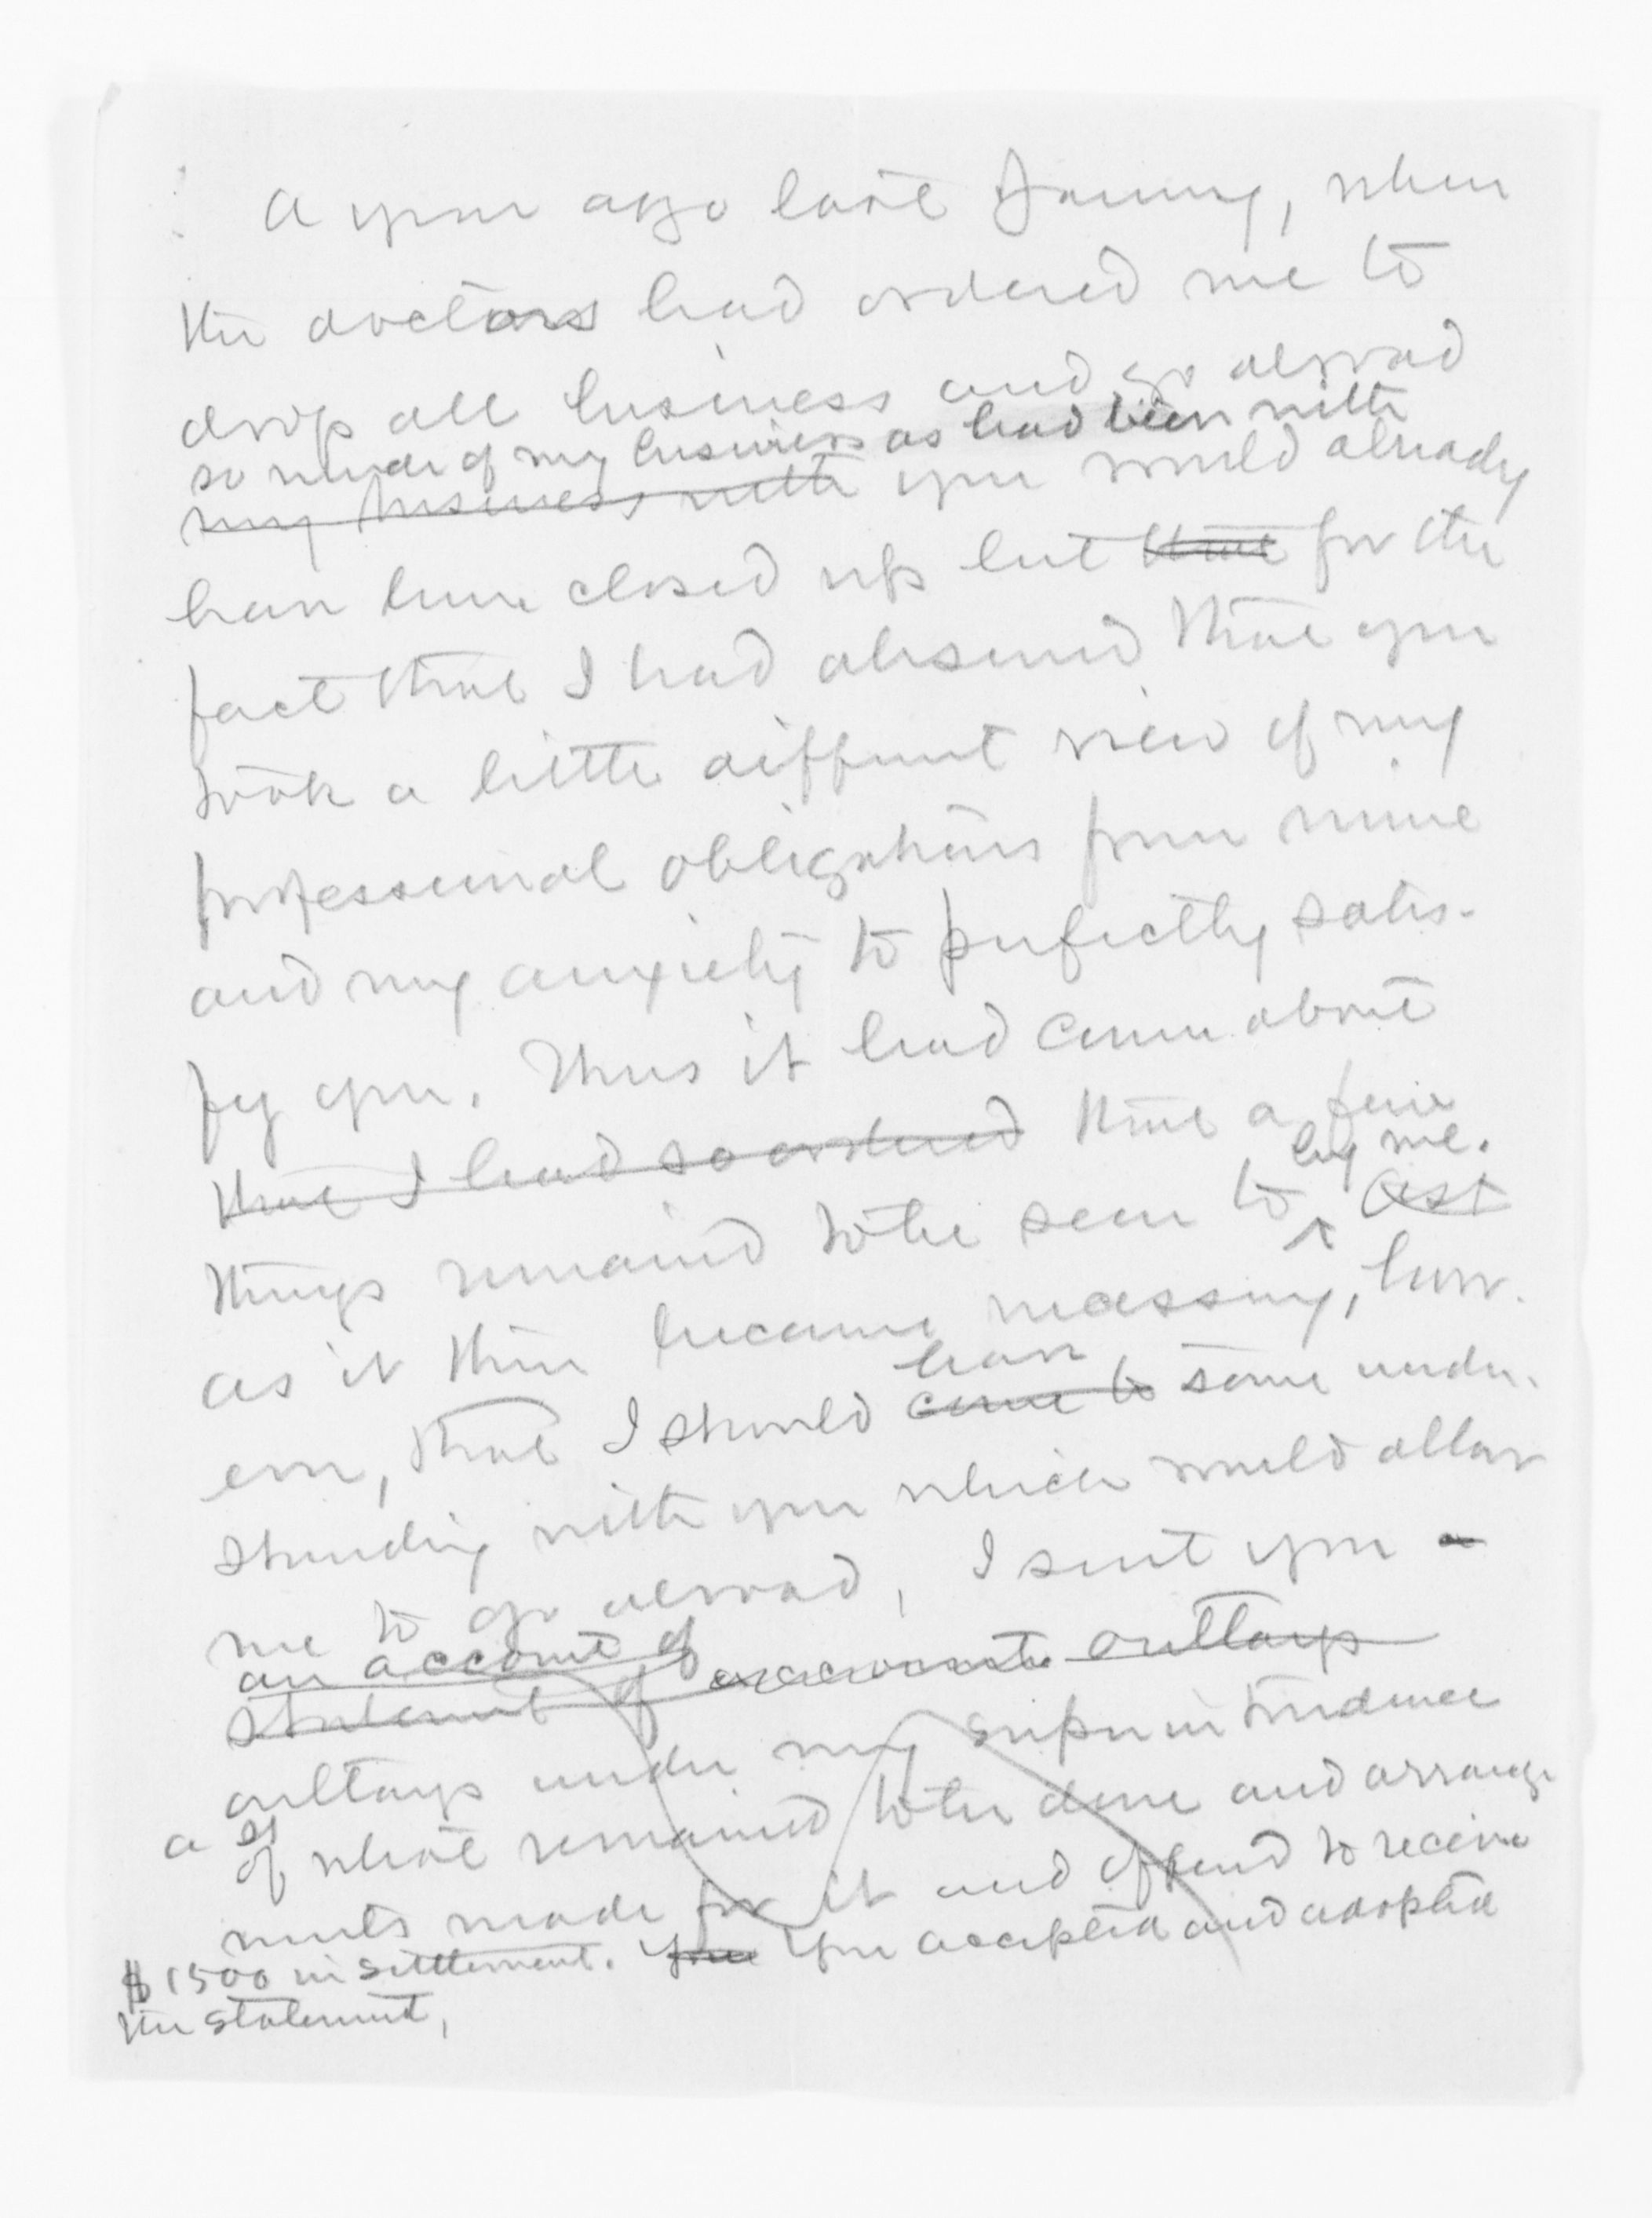 A year ago last January, when
the doctors had ordered me to
drop all business and go abroad
so much of my business as had been with
my business with you would already
have been closed up but that for the
fact that I had observed that you
took a little different view of my
professional obligations from mine
and my anxiety to perfectly satis-
fy you. Thus it had come about
that I had so ordered that a few
by me.
things remained to be seen to ^ Just
as it then became necessary, how-
ever, that I should come to some under-
have
standing with you which would allow
me to go abroad, I sent you a
an account of
statement of accounts outlays
outlays under my superintendence
a of what remained to be done and arrange
ments made for it and offered to receive
$1500 in settlement. You you accepted and adopted
the statement,